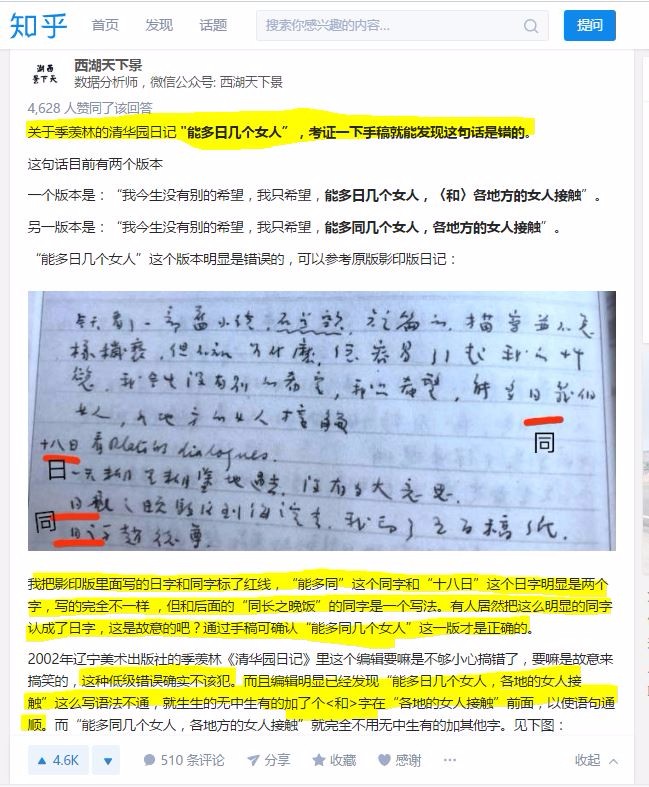 知乎 首页 发现 话题 搜索你感兴趣的内容... 提问
西湖天下景
数据分析师，微信公众号: 西湖天下景
4,628 人赞同了该回答
关于季羡林的清华园日记 "能多日几个女人"，考证一下手稿就能发现这句话是错的。
这句话目前有两个版本
一个版本是：“我今生没有别的希望，我只希望，能多日几个女人，（和）各地方的女人接触”。
另一版本是：“我今生没有别的希望，我只希望，能多同几个女人，各地方的女人接触”。
“能多日几个女人”这个版本明显是错误的，可以参考原版影印版日记：
今天看了一部旧小说，
女人，各地方的女人接触
同
十八日 看Plato的dialogues.
日
同
我把影印版里面写的日字和同字标了红线，“能多同”这个同字和“十八日”这个日字明显是两个
字，写的完全不一样，但和后面的“同长之晚饭”的同字是一个写法。有人居然把这么明显的同字
认成了日字，这是故意的吧？通过手稿可确认“能多同几个女人”这一版才是正确的。
2002年辽宁美术出版社的季羡林《清华园日记》里这个编辑要嘛是不够小心搞错了，要嘛是故意来
搞笑的，这种低级错误确实不该犯。而且编辑明显已经发现“能多日几个女人，各地的女人接
触”这么写语法不通，就生生的无中生有的加了个<和>字在“各地的女人接触”前面，以使语句通
顺。而“能多同几个女人，各地方的女人接触”就完全不用无中生有的加其他字。见下图：
4.6K 510 条评论 分享 收藏 感谢 ··· 收起